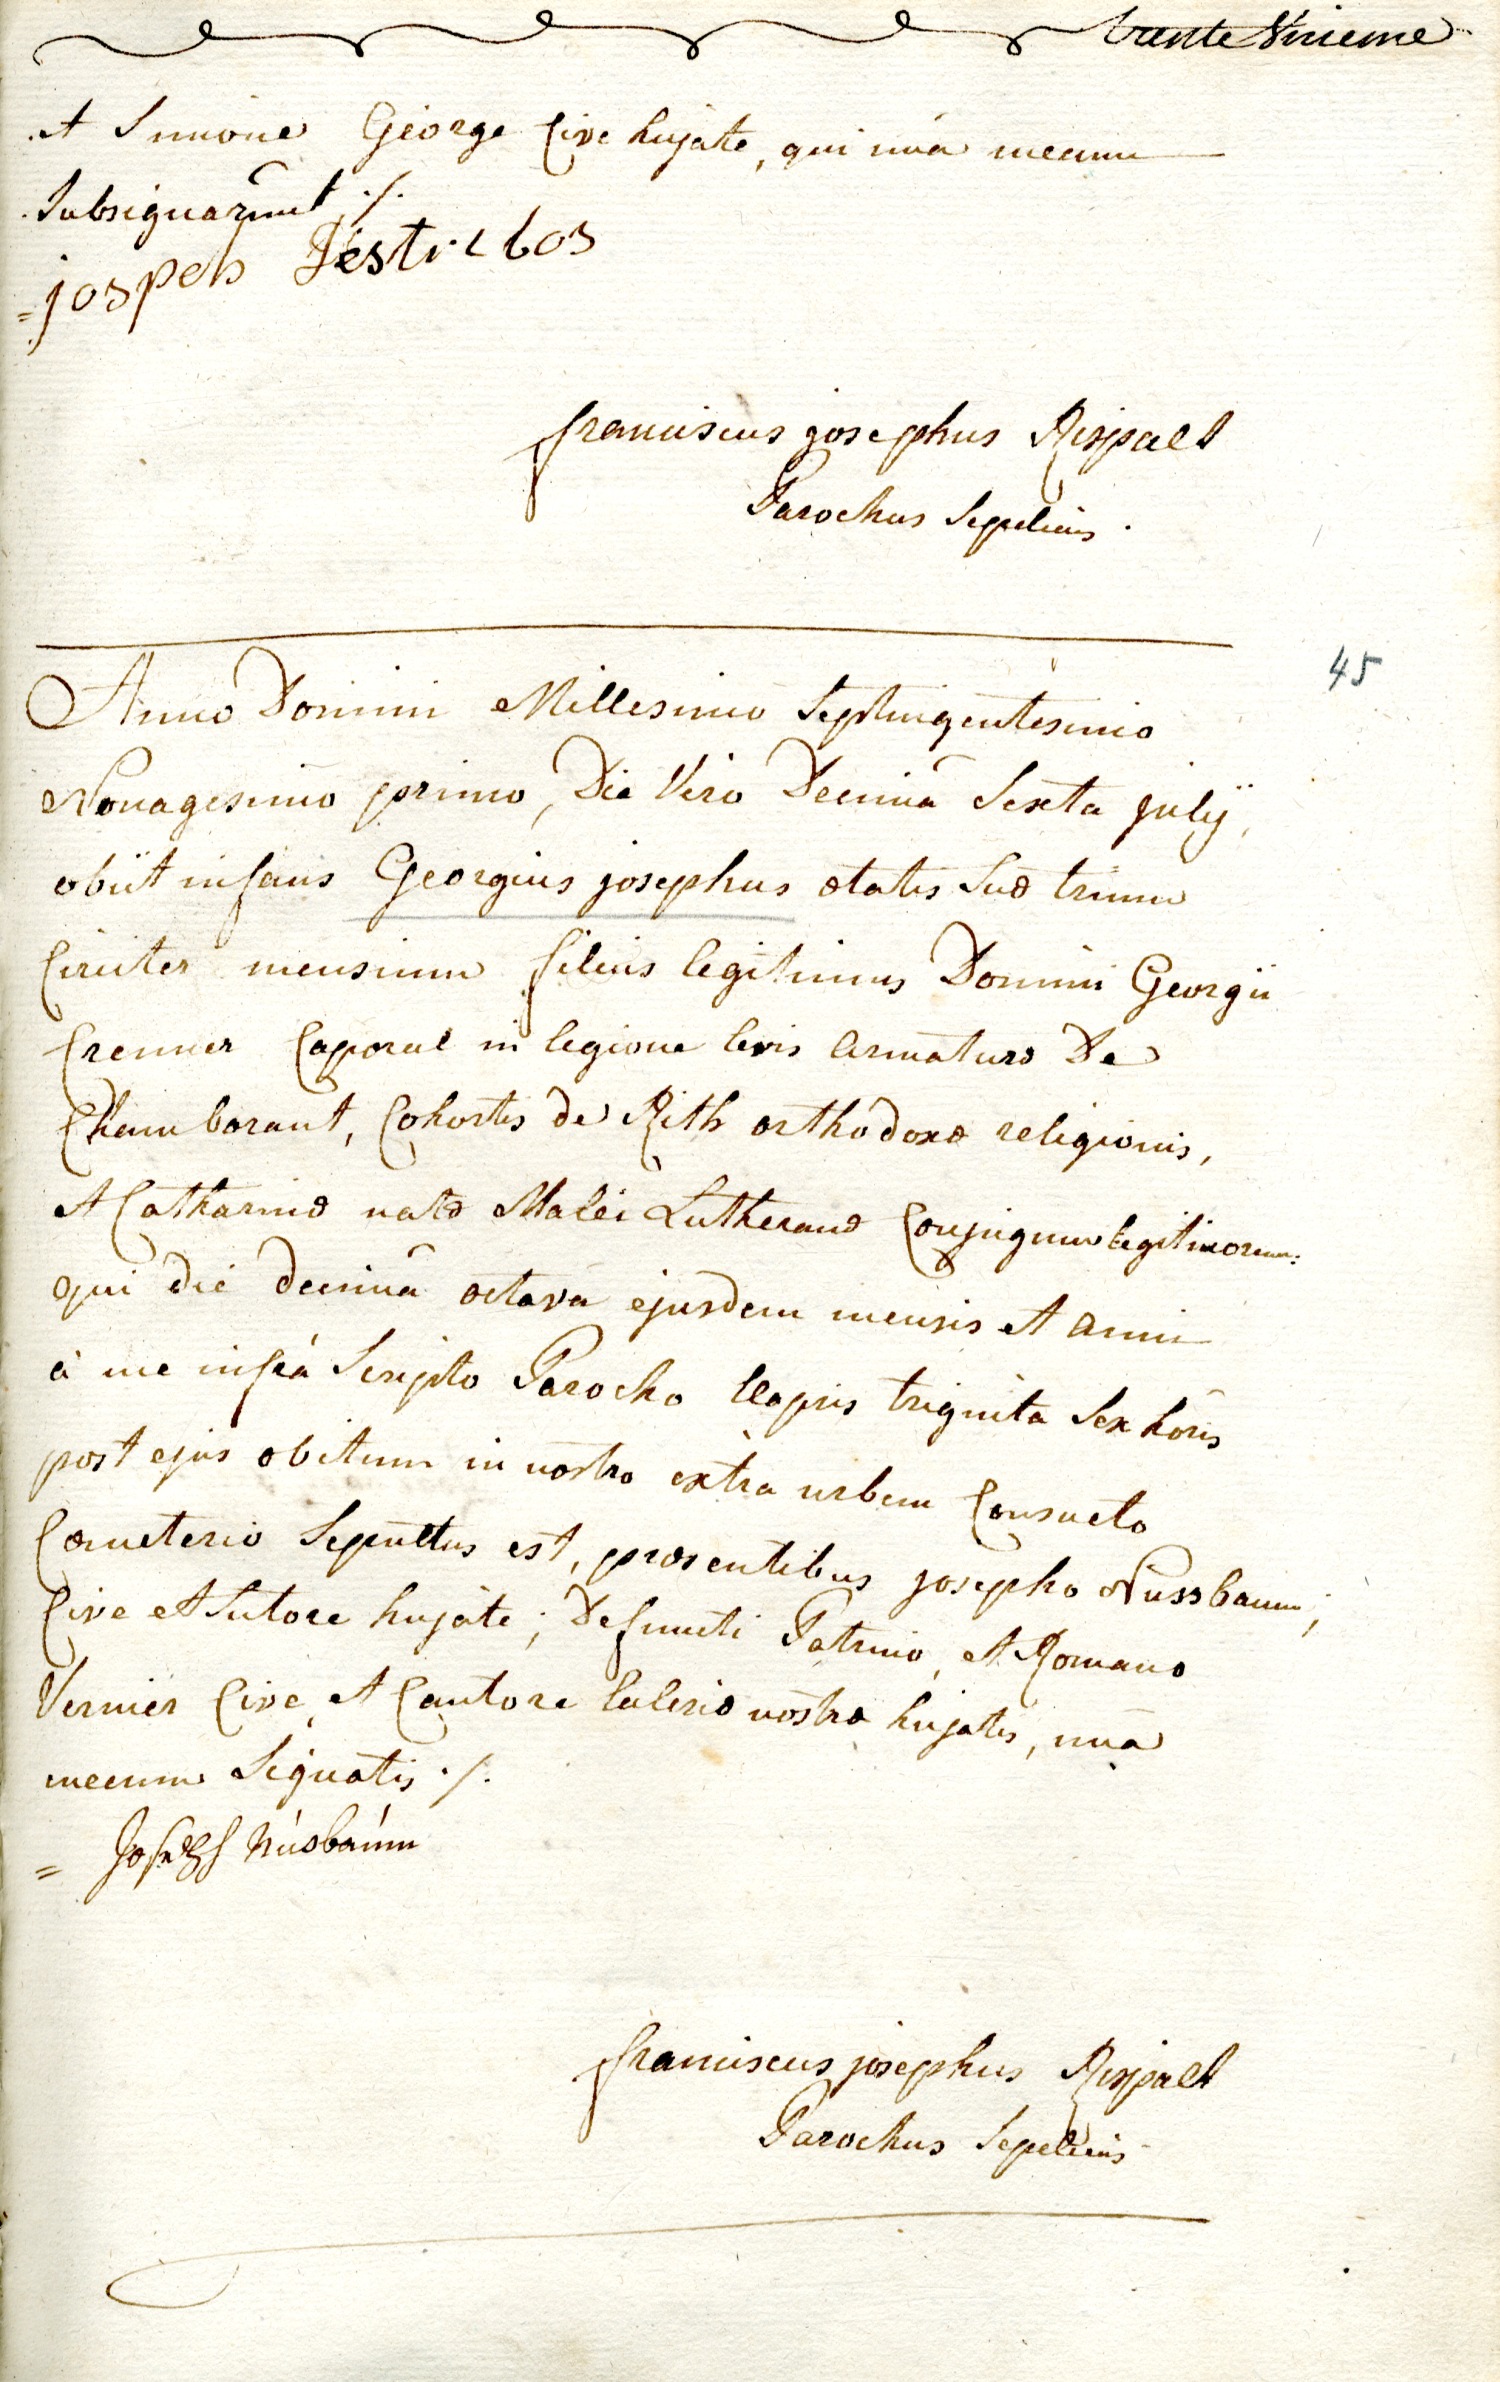 trente Unieme
et Simone George Cive hujate, qui unà mecum
Subsignarunt ./.
= jospeh
franciscus josephus Rispalt
Parochus Sepeliens.
45
Anno Domini Millesimo Septingentesimo
Nonagesimo primo, Die Vero Decimâ Sexta julÿ,
obiit infans Georgius josephus ætatis Suæ trium
Circiter mensium filius legitimus Domini Georgii
Cremer Caporal in legione levis armaturæ De
Chamborant, Cohortis de Rith orthodoxæ religionis,
et Catharinæ natæ Malei Lutheranæ Conjugum legitimorum:
qui die decimâ octava ejusdem mensis et anni
à me infrà Scripto Parocho Elapsis triginta Sex horis
post ejus obitum in nostro extra urbem Consueto
Cœmeterio Sepultus est, præsentibus josepho Nussbaum,
Cive et Sutore hujate; Defuncti Patrino, et Romano
Vernier Cive, et Cantore Ecclesiæ nostræ hujatis, unà
mecum Signatis ./.
= Joseph Nusbaum
franciscus josephus Rispalt
Parochus Sepeliens